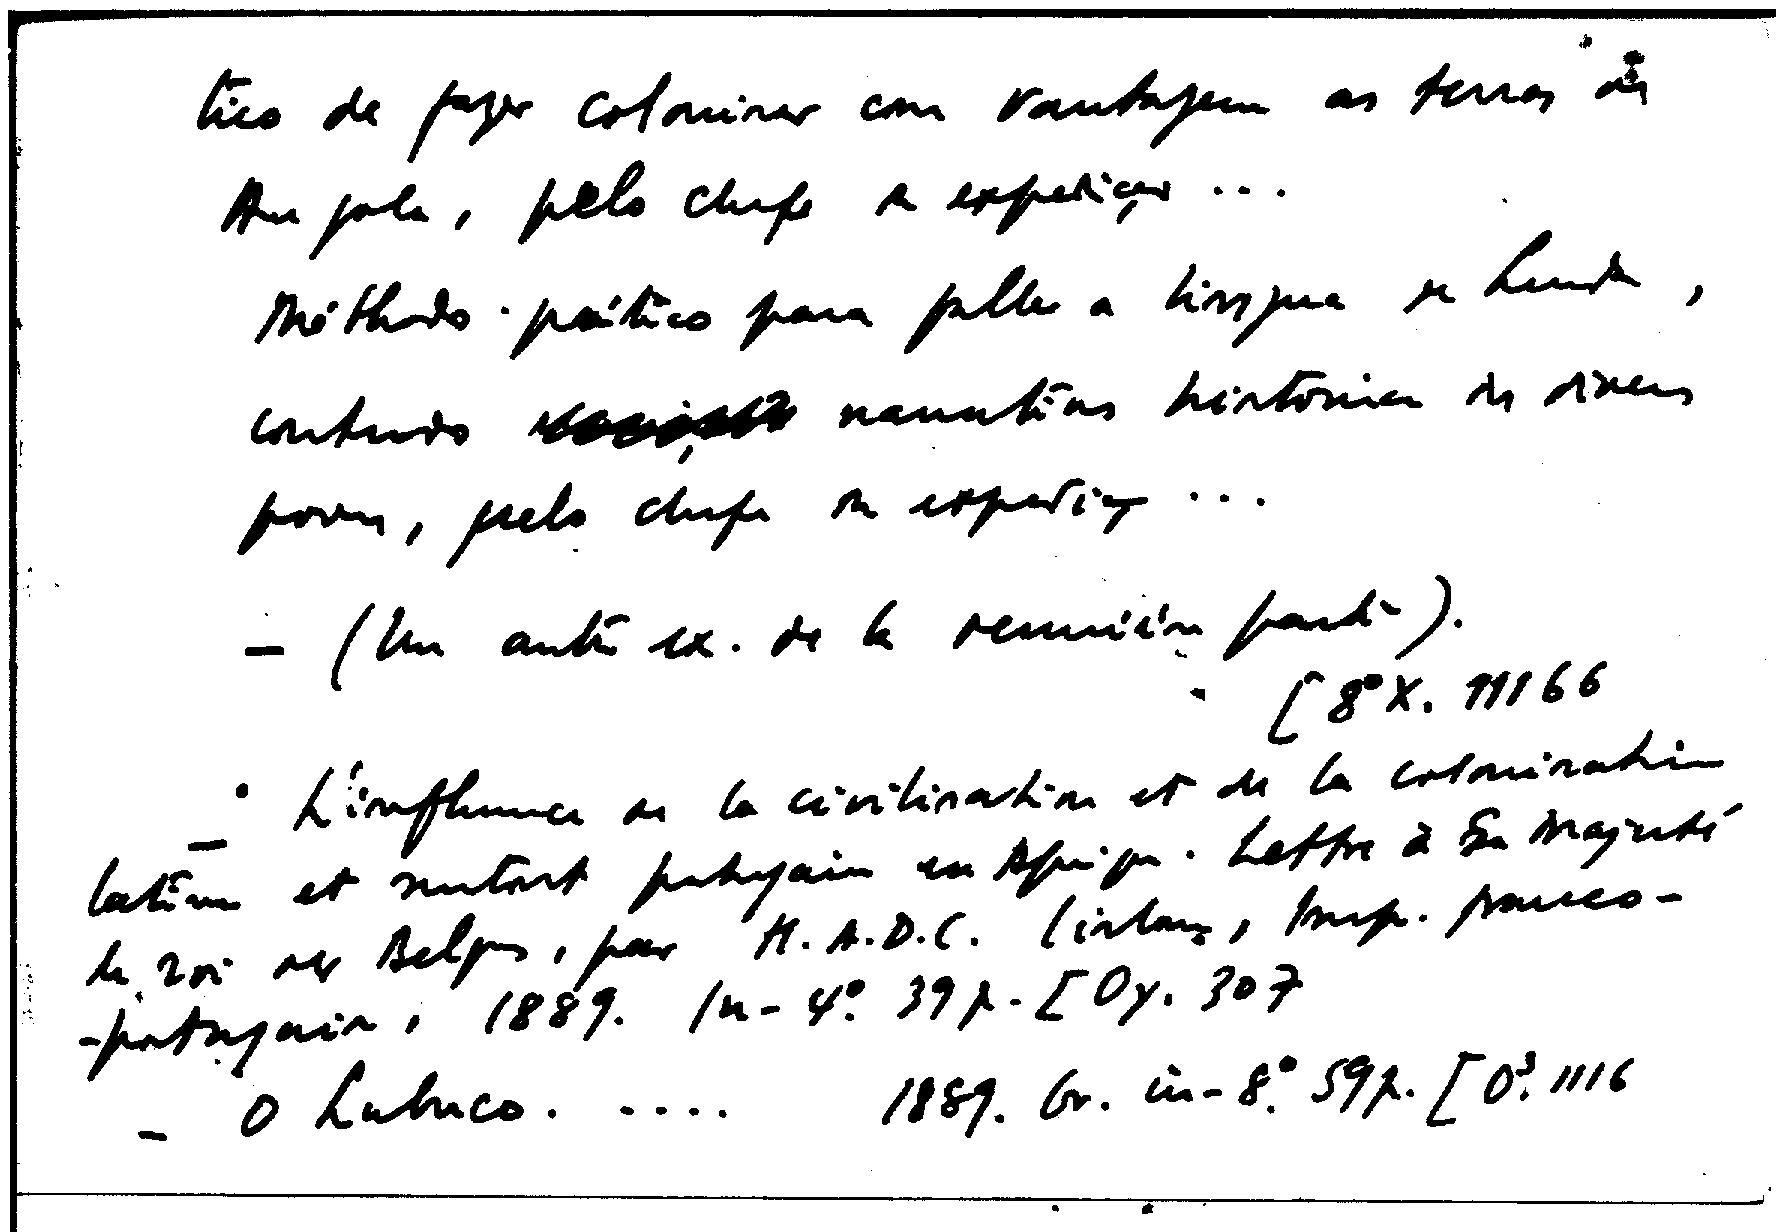 tico de fazer colonisar com vantagem as terras de
Angola, pelo chefe da expedição ...
Méthodo prático para fallar a lingua da Lunda,
contendo narrativas historicas dos diversos
povos, pelo chefe da expedição ...
— (Un autre ex. de la
[8° X. 11166
— L'influence de la civilisation et de la colonisation
latine et surtout portugaise en Afrique. Lettre à Sa Majesté
le roi des Belges, par H.A.D.C. Lisbonne, Imp. franco-
-portugaise, 1889. In-4°. 39 p. [Oy. 307
— O Lubuco. .... 1889. Gr. in-8°. 59 p. [O³. 1116